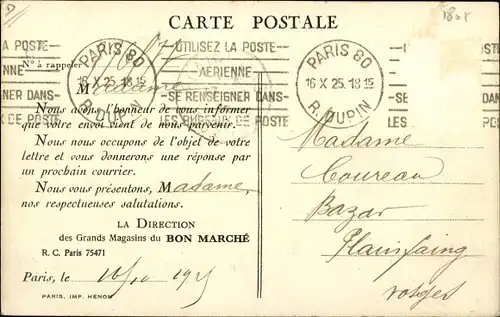 CARTE POSTALE
1808
A LA POSTE—
PARIS 80
16 X 25. 18 15
R. DUPIN
UTILISEZ LA POSTE—
—AÉRIENNE—
—SE RENSEIGNER DANS—
LES BUREAUX DE POSTE
PARIS 80
16 X 25. 18 15
R. DUPIN
UTILISEZ
SE REN
LES BU
N° à rappeler
Madame
Nous avons l'honneur de vous informer
que votre envoi vient de nous parvenir.
Nous nous occupons de l'objet de votre
lettre et vous donnerons une réponse par
un prochain courrier.
Nous vous présentons, Madame,
nos respectueuses salutations.
LA DIRECTION
des Grands Magasins du BON MARCHÉ
R. C. Paris 75471
Paris, le 16/10 1925
PARIS, IMP. HENON
Madame
Coureau
Bazar
Plainfaing
Vosges